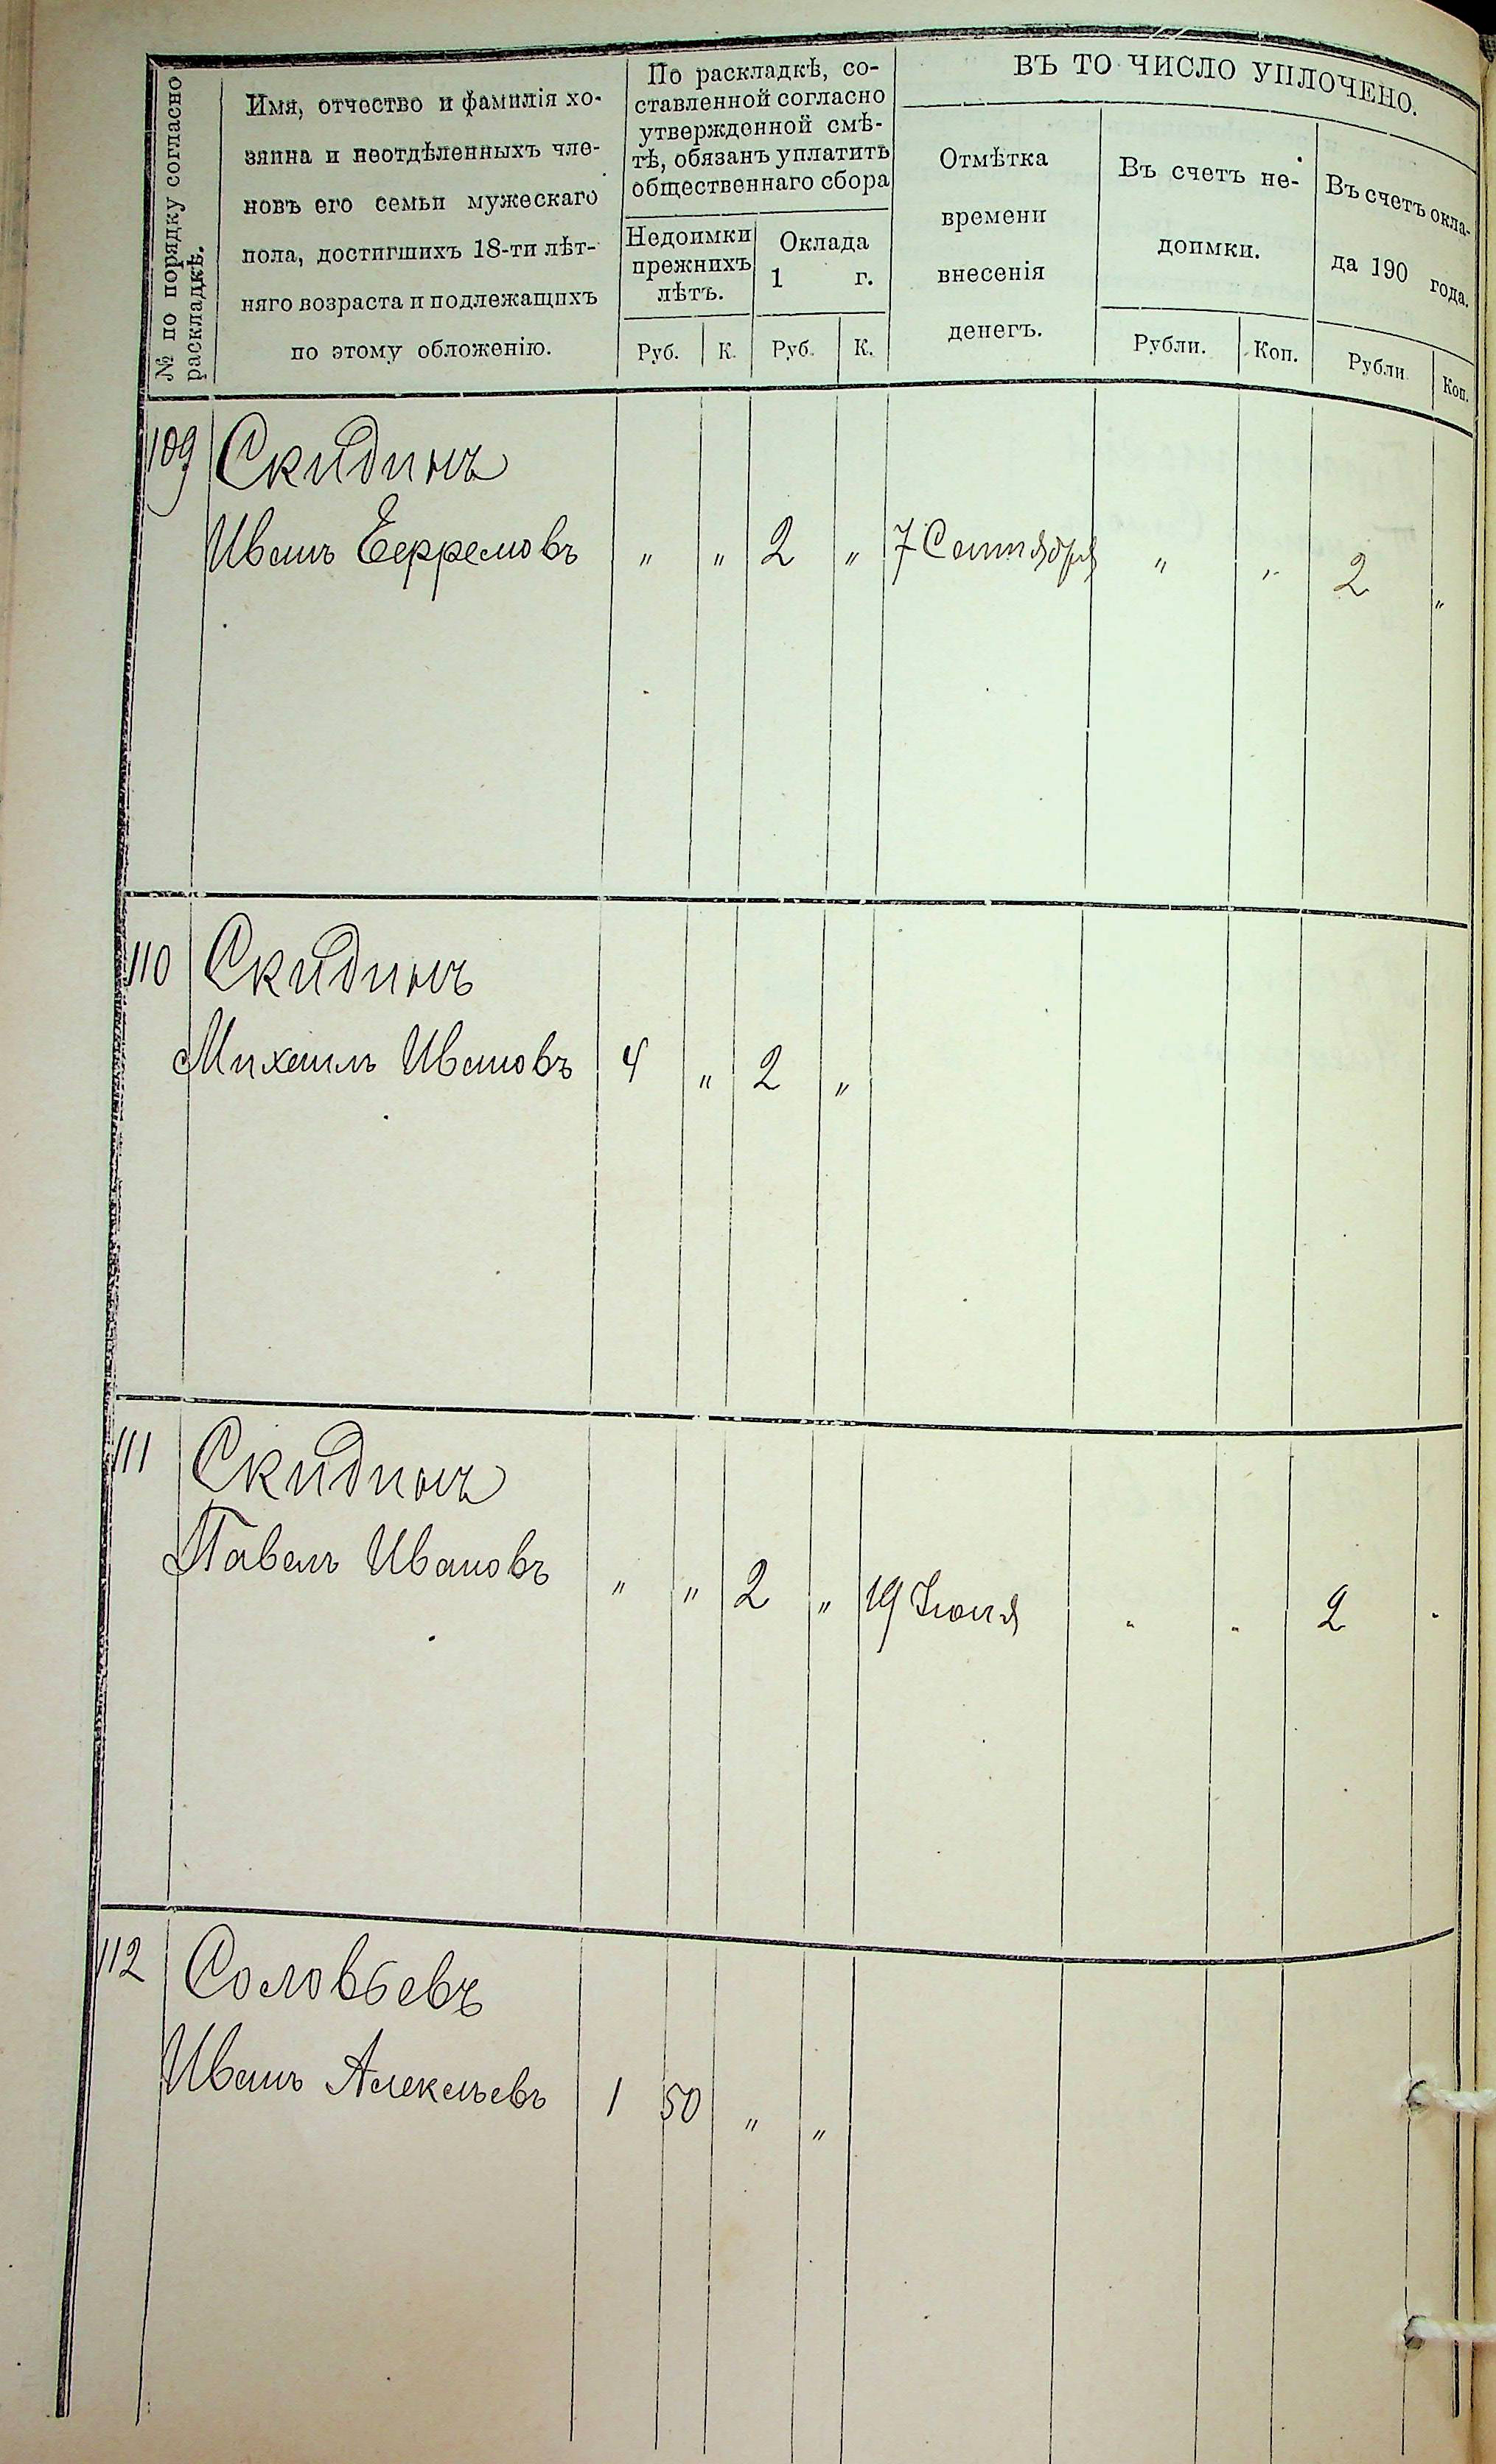 № по порядку согласно
раскладкѣ.
Имя, отчество и фамилія хо-
зяина и неотдѣленныхъ чле-
новъ его семьи мужескаго
пола, достигшихъ 18-ти лѣт-
няго возраста и подлежащихъ
по этому обложенію.
По раскладкѣ, со-
ставленной согласно
утвержденной смѣ-
тѣ, обязанъ уплатить
общественнаго сбора
Недоимки
прежнихъ
лѣтъ.
Оклада
1 г.
Руб. К. Руб. К.
ВЪ ТО ЧИСЛО УПЛОЧЕНО.
Отмѣтка
времени
внесенія
денегъ.
Въ счетъ не-
доимки.
Рубли. Коп.
Въ счетъ окла-
да 190 года.
Рубли Коп.
109 Скидинъ
Иванъ Ефремовъ " " 2 " 7 Сентября " " 2 "
110 Скидинъ
Михаилъ Ивановъ 4 " 2 "
111 Скидинъ
Павелъ Ивановъ " " 2 " 19 Іюня " " 2 "
112 Соловьевъ
Иванъ Алексѣевъ 1 50 " "